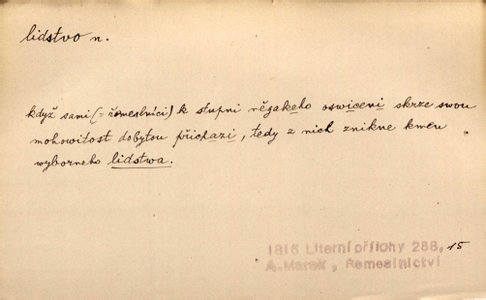 lidstvo n.
když sami (= řemeslníci) k stupni něgakeho oswiceni skrze swou
mohowitost dobytou přichazi, tedy z nich znikne kmen
wyborneho lidstwa.
1816 Literní přílohy 288, 15
A. Marek, Řemeslnictví